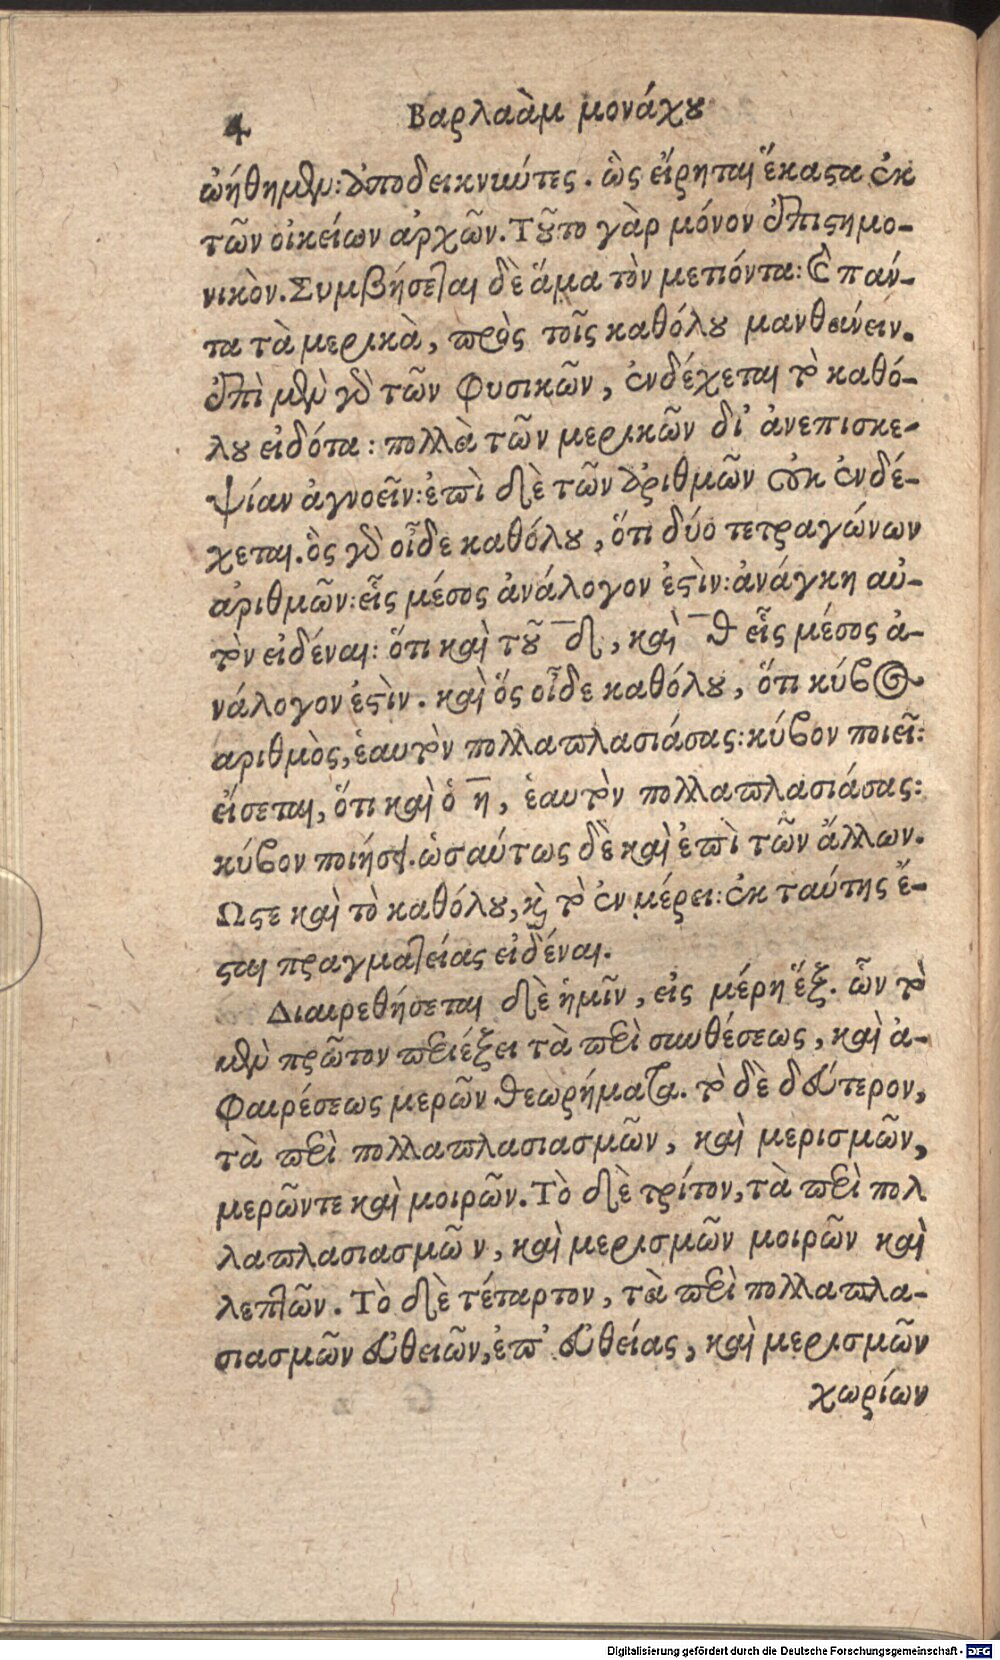 4 Βαρλαὰμ μονάχου
ὠήθημεν: ἀποδεικνύντες. ὡς εἴρηται ἕκαστα ἐκ
τῶν οἰκείων ἀρχῶν. Τοῦτο γὰρ μόνον ἐπιστημο-
νικὸν. Συμβήσεται δὲ ἅμα τὸν μετιόντα: καὶ πάν-
τα τὰ μερικὰ, πρὸς τοῖς καθόλου μανθάνειν.
ἐπὶ μὲν γὰρ τῶν φυσικῶν, ἐνδέχεται τὸ καθό-
λου εἰδότα: πολλὰ τῶν μερικῶν δι' ἀνεπισκε-
ψίαν ἀγνοεῖν: ἐπὶ δὲ τῶν ἀριθμῶν οὐκ ἐνδέ-
χεται. ὃς γὰρ οἶδε καθόλου, ὅτι δύο τετραγώνων
ἀριθμῶν: εἷς μέσος ἀνάλογον ἐστὶν: ἀνάγκη αὐ-
τὸν εἰδέναι: ὅτι καὶ τοῦ ¯δ, καὶ ¯θ εἷς μέσος ἀ-
νάλογον ἐστὶν. καὶ ὅς οἶδε καθόλου, ὅτι κύβος
αριθμὸς, ἑαυτὸν πολλαπλασιάσας: κύβον ποιεῖ:
εἴσεται, ὅτι καὶ ὁ ¯η, ἑαυτὸν πολλαπλασιάσας:
κύβον ποιήσει. ὡσαύτως δὲ καὶ ἐπὶ τῶν ἄλλων.
Ωστε καὶ τὸ καθόλου, καὶ τὸ ἐν μέρει: ἐκ ταύτης ἔ-
σται πραγματείας εἰδέναι.
Διαιρεθήσεται δὲ ἡμῖν, εἰς μέρη ἕξ. ὧν τὸ
μὲν πρῶτον περιέξει τὰ περὶ συνθέσεως, καὶ ἀ-
φαιρέσεως μερῶν θεωρήματα. τὸ δὲ δεύτερον,
τὰ περὶ πολλαπλασιασμῶν, καὶ μερισμῶν,
μερῶντε καὶ μοιρῶν. Τὸ δὲ τρίτον, τὰ περὶ πολ
λαπλασιασμῶν, καὶ μερισμῶν μοιρῶν καὶ
λεπτῶν. Τὸ δὲ τέταρτον, τὰ περὶ πολλαπλα-
σιασμῶν εὐθειῶν, ἐπ' εὐθείας, καὶ μερισμῶν
χωρίων
Digitalisierung gefördert durch die Deutsche Forschungsgemeinschaft - DFG